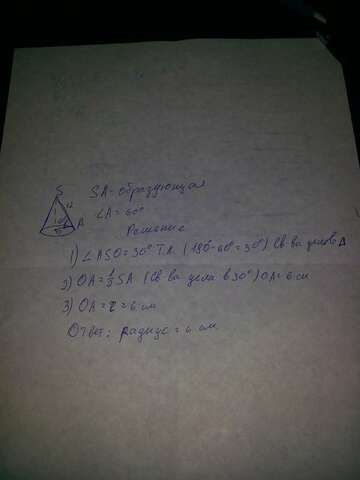 S
SA-образующая
12
∠A = 60°
60°
A
Решение
1) ∠ASO = 30° т.к. (180-60=30°) Св-ва
2) OA = 1/2 SA (св-ва угла в 30°) OA = 6 см
3) OA = r = 6 см
Ответ: радиус = 6 см